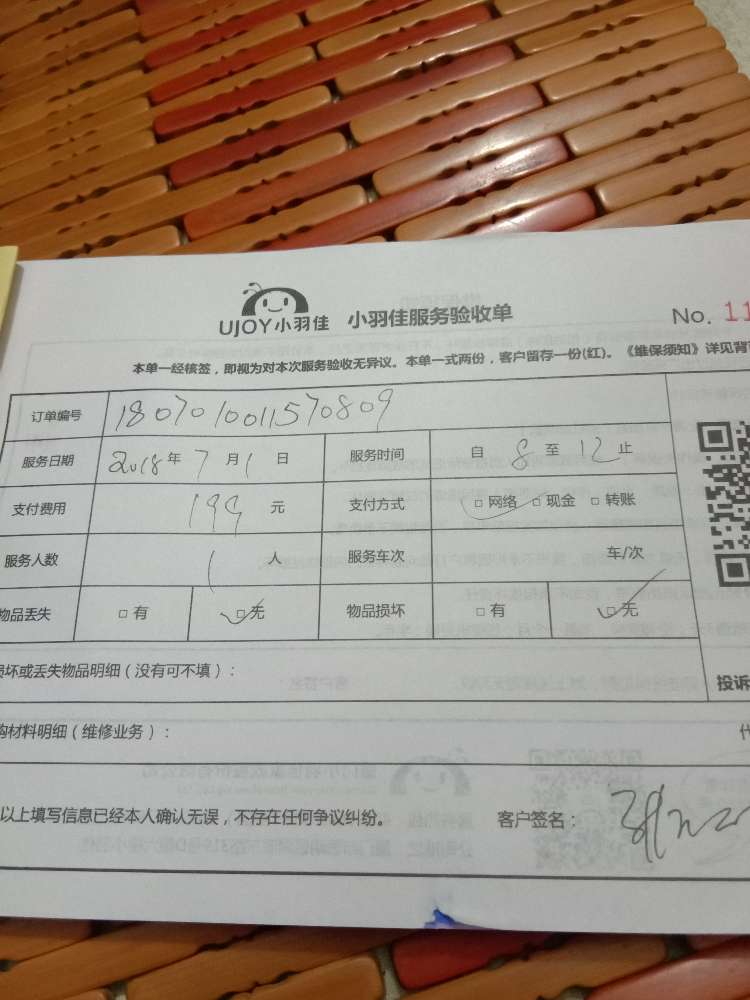 UJOY小羽佳 小羽佳服务验收单 No. 11
本单一经核签，即视为对本次服务验收无异议。本单一式两份，客户留存一份(红)。《维保须知》详见背
订单编号 1807010011570809
服务日期 2018年7月1日 服务时间 自8至12止
支付费用 199元 支付方式 □网络 □现金 □转账
服务人数 1人 服务车次 车/次
物品丢失 □有 □无 物品损坏 □有 □无
损坏或丢失物品明细（没有可不填）： 投诉
购材料明细（维修业务）：
以上填写信息已经本人确认无误，不存在任何争议纠纷。 客户签名：